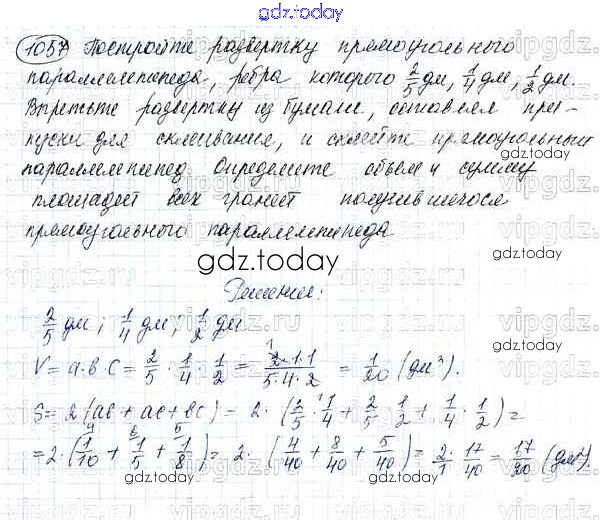 gdz.today
1057 Постройте развертку прямоугольного
параллелепипеда, ребра которого 2/5 дм, 1/4 дм, 1/2 дм.
Вырежьте развертку из бумаги, оставляя при-
пуски для склеивания, и склейте прямоугольный
параллелепипед. Определите объем и сумму
площадей всех граней получившегося
прямоугольного параллелепипеда
gdz.today
Решение:
2/5 дм; 1/4 дм; 1/2 дм
V = a·b·c = 2/5 · 1/4 · 1/2 = 2·1·1/5·4·2 = 1/20 (дм³).
S = 2(ab + ac + bc) = 2·(2/5 · 1/4 + 2/5 · 1/2 + 1/4 · 1/2) =
= 2·(1/10 + 1/5 + 1/8) = 2·(4/40 + 8/40 + 5/40) = 2/1 · 17/40 = 17/20 (дм²)
gdz.today